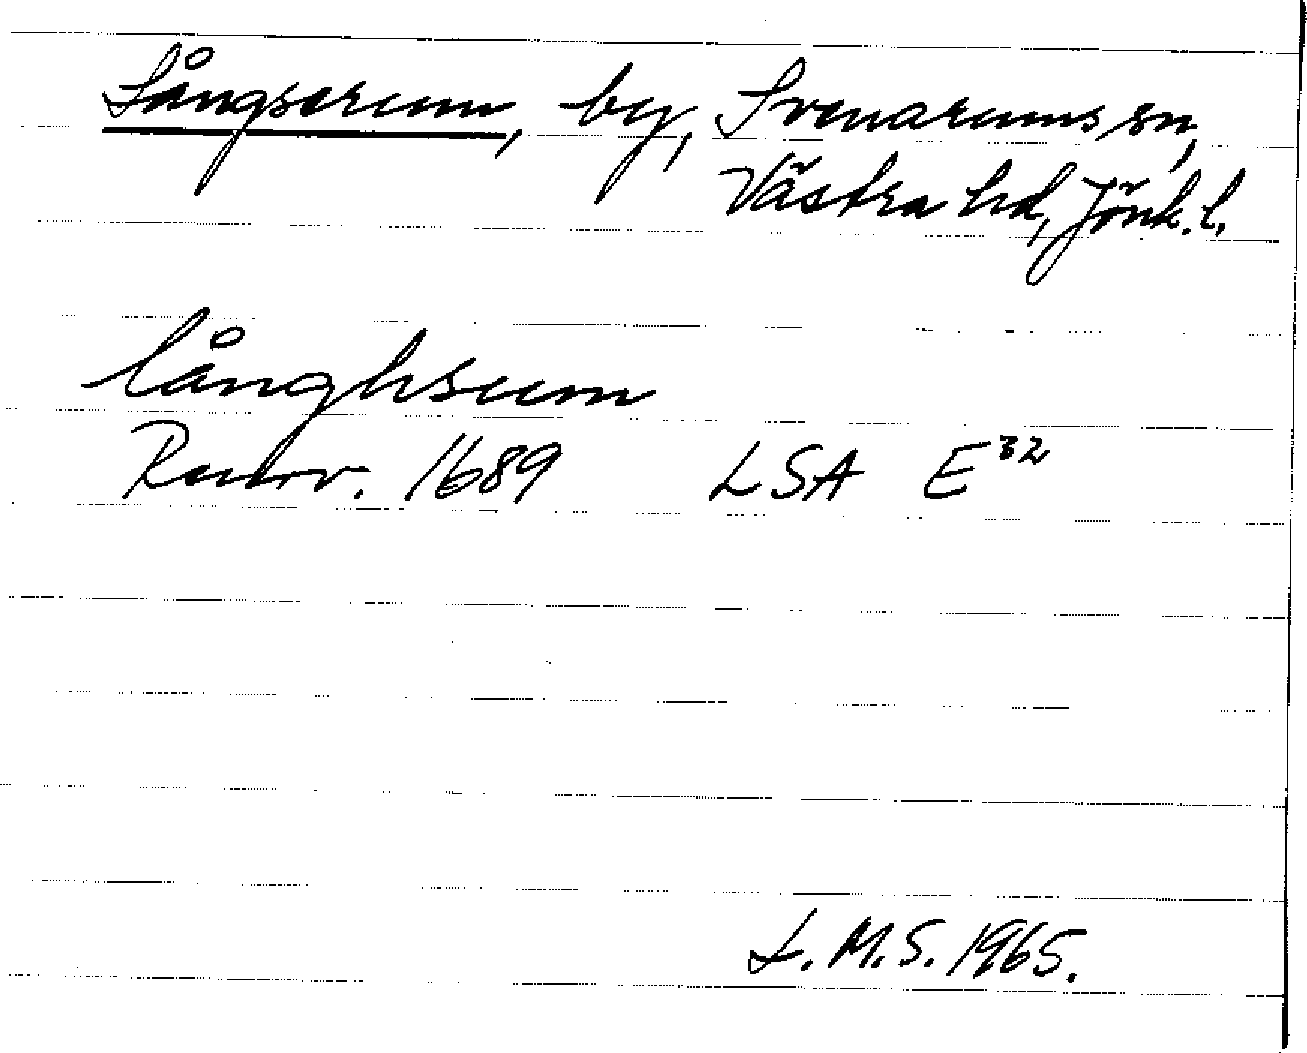 Långserum, by, Svenarums sn,
Västra hd, Jönk. l.
långhsum
Renov. 1689 LSA E³²
L. M. S. 1965.